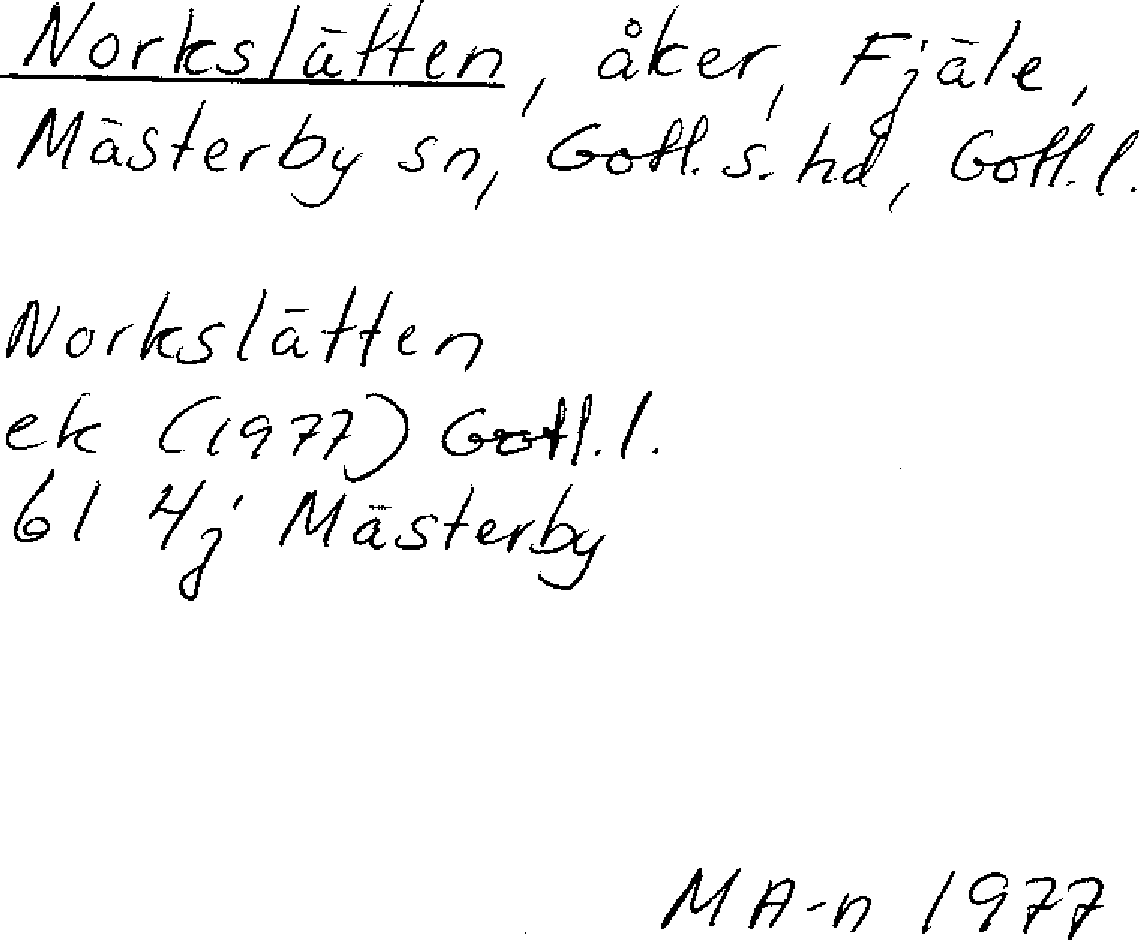 Norkslätten, åker, Fjäle,
Mästerby sn, Gotl. s. hd, Gotl. l.
Norkslätten
ek (1977) Gotl. l.
6I 4j Mästerby
MA-n 1977